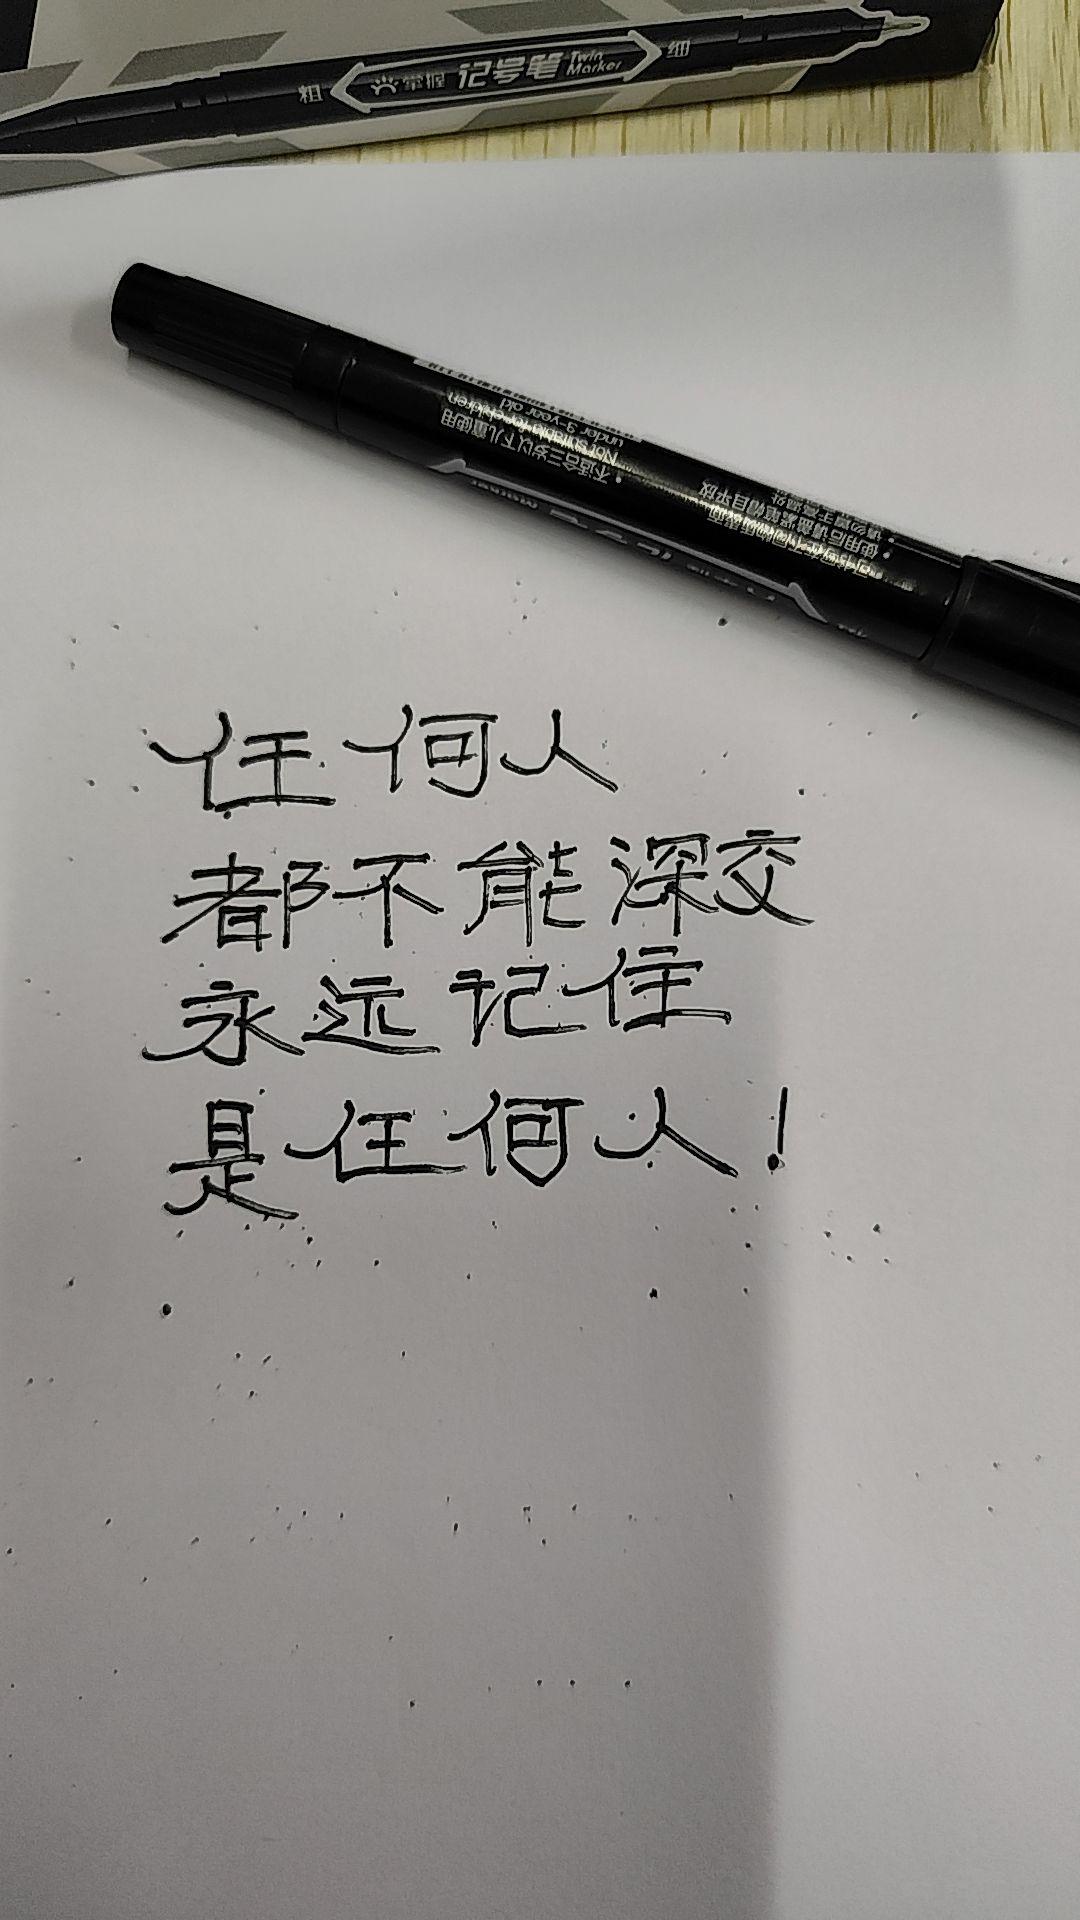 粗 掌握 记号笔 Twin Marker 细
不适合三岁以下儿童使用
Not suitable for children
under 3-year old
使用后请盖紧笔帽自平放
任何人
都不能深交
永远记住
是任何人！